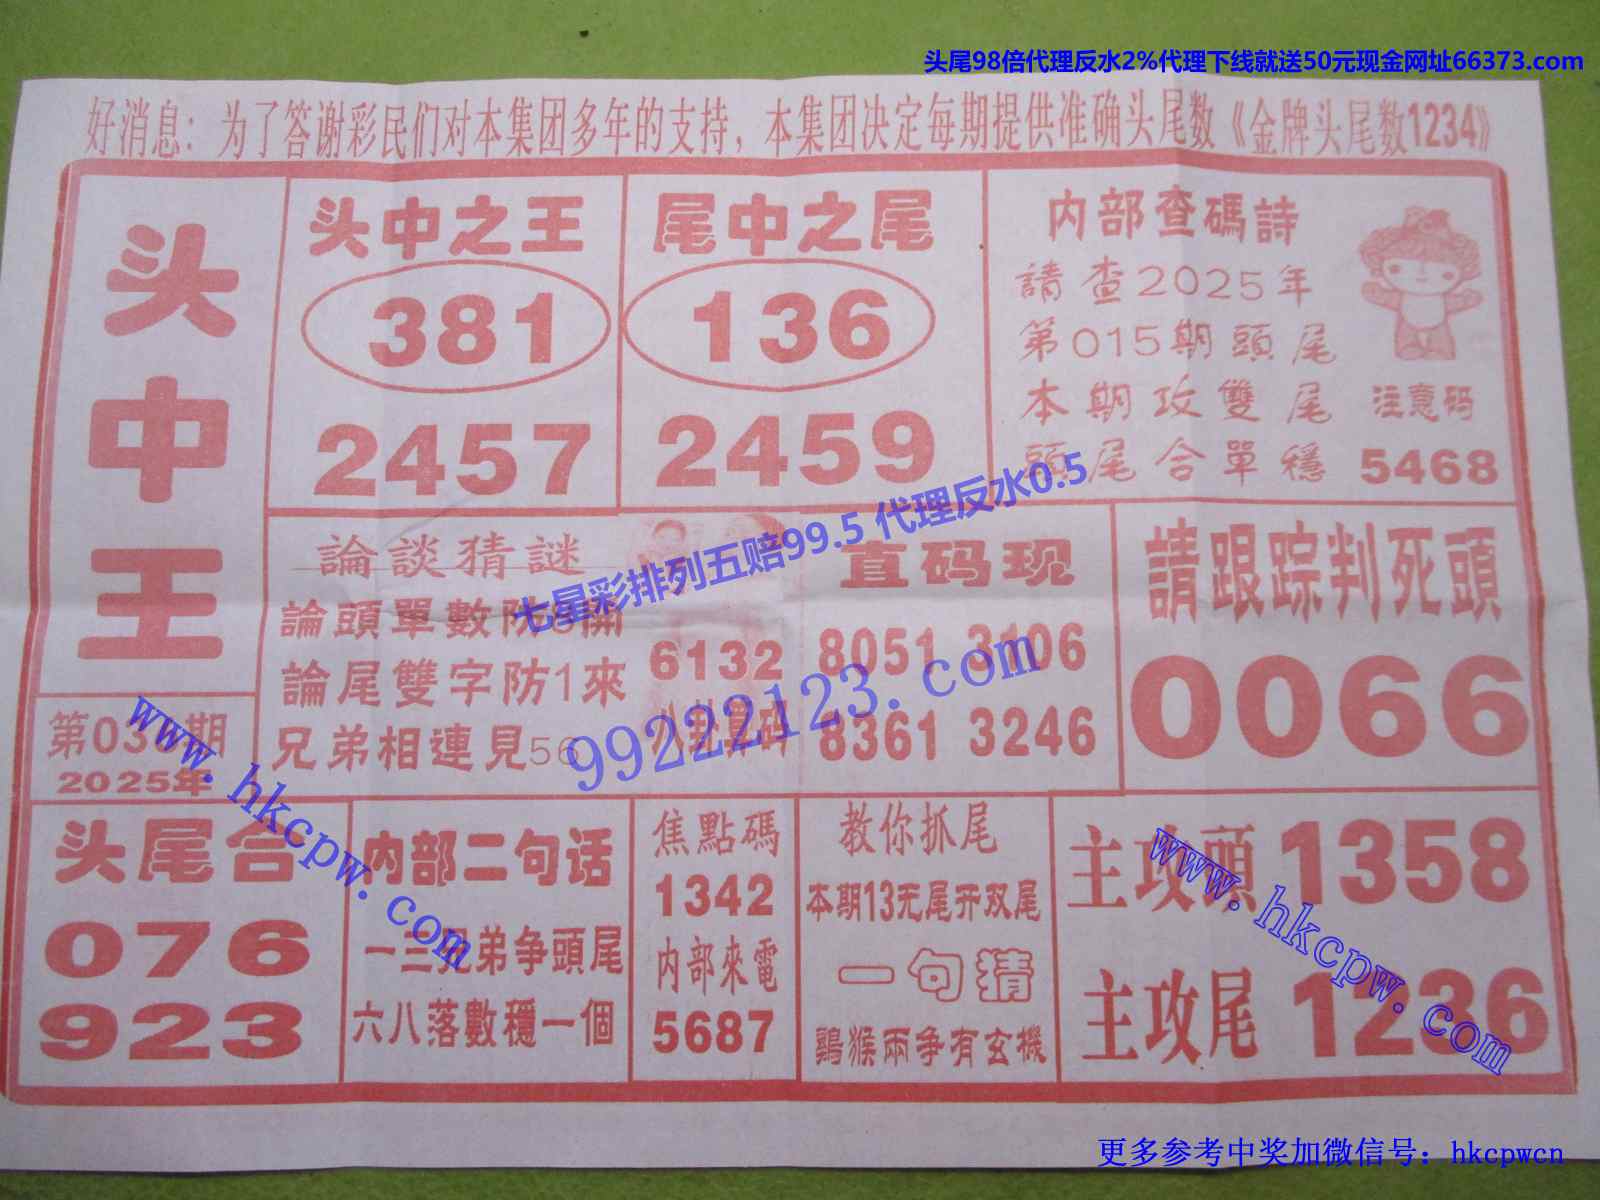 头尾98倍代理反水2%代理下线就送50元现金网址66373.com
好消息：为了答谢彩民们对本集团多年的支持，本集团决定每期提供准确头尾数《金牌头尾数1234》
头中王
头中之王
381
2457
尾中之尾
136
2459
内部查碼詩
請查2025年
第015期頭尾
本期攻雙尾
頭尾合單穩
注意码
5468
七星彩排列五赔99.5 代理反水0.5
論談猜謎
論頭單數防
開
論尾雙字防1來
兄弟相連見56
6132
八卦算码
直码现
8051 3106
8361 3246
99222123.com
請跟踪判死頭
0066
第03
期
2025年
www.hkcpw.com
头尾合
076
923
内部二句话
一三兄弟争頭尾
六八落數穩一個
焦點碼
1342
内部來電
5687
教你抓尾
本期13无尾开双尾
一句猜
鷄猴兩争有玄機
主攻頭 1358
主攻尾 1236
www.hkcpw.com
更多参考中奖加微信号：hkcpwcn